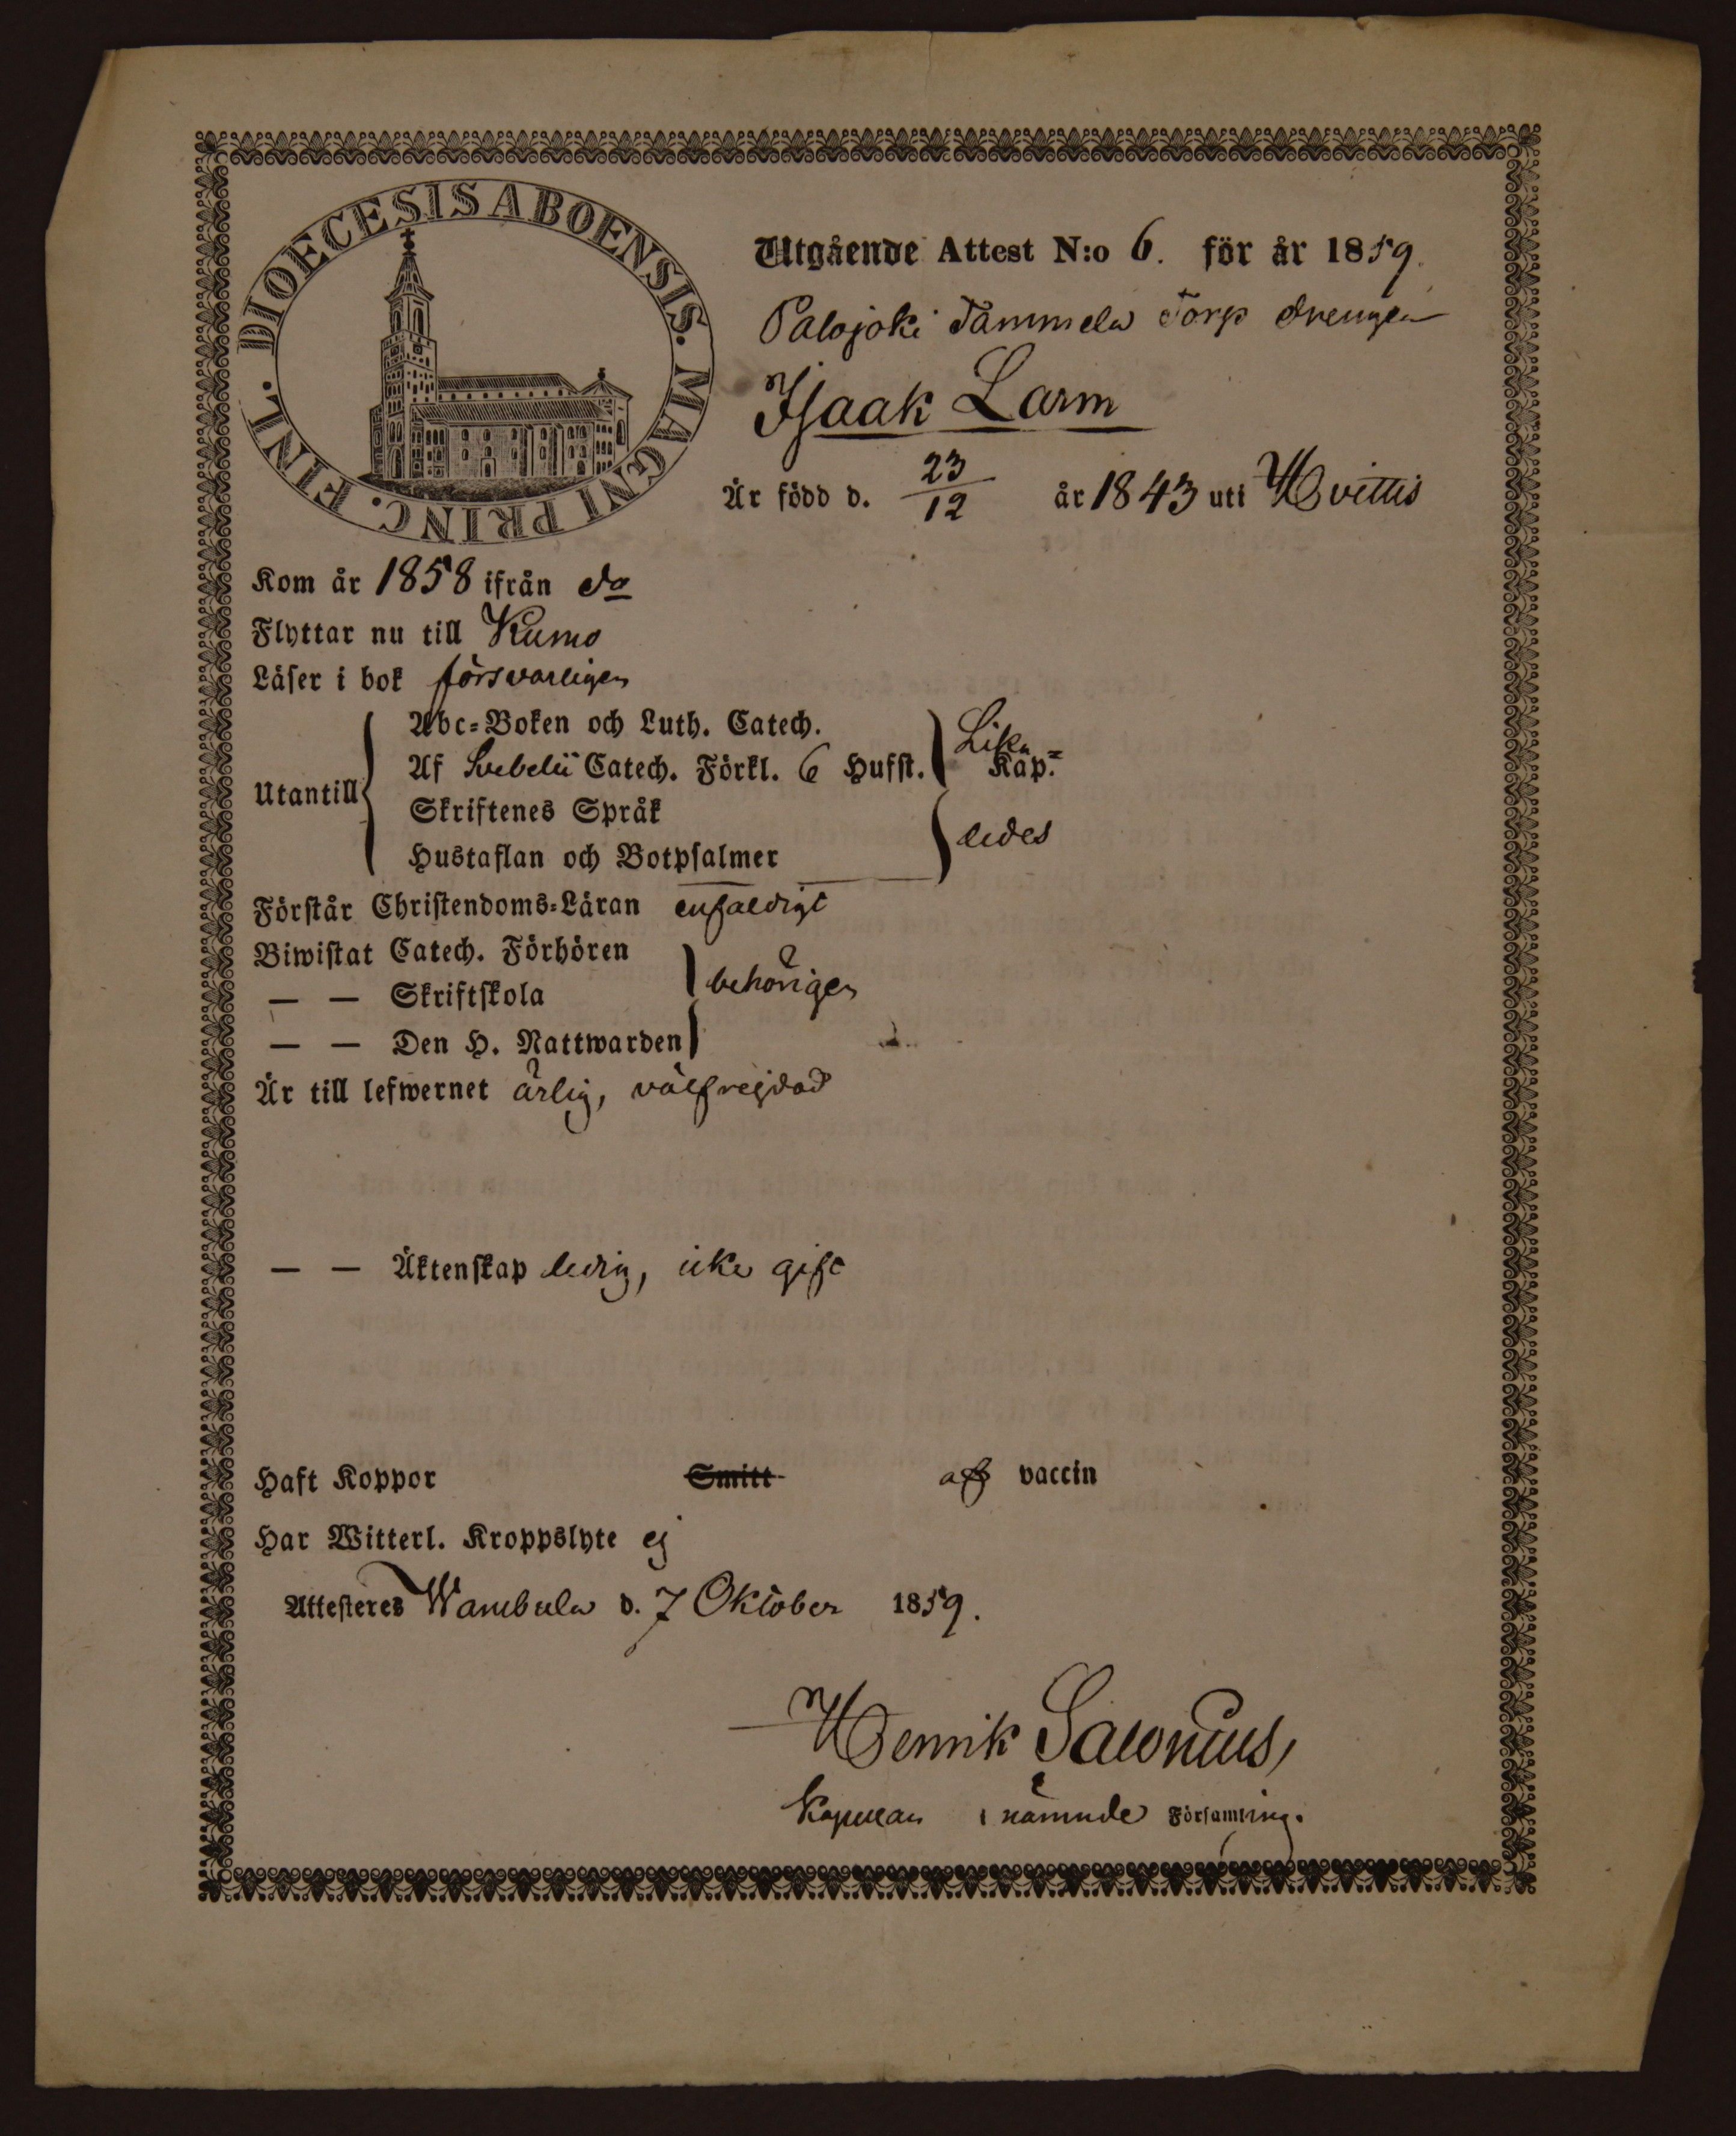 DIOECESIS ABOENSIS. MAGNI PRINC. FINL.
Utgående Attest N:o 6. för år 1859.
Palojoki Tammela Torp drengen
Isaak Larm
Är född d. 23/12 år 1843 uti Hvittis
Kom år 1858 ifrån do
Flyttar nu till Kumo
Läser i bok försvarligen
Utantill
Abc-Boken och Luth. Catech.
Af Svebelii Catech. Förkl. 6 Hufst. Kap. Lika=
Skriftenes Språk
Hustaflan och Botpsalmer ledes
Förstår Christendoms-Läran enfaldigt
Biwistat Catech. Förhören
— — Skriftskola behörigen
— — Den H. Nattwarden
Är till lefwernet ärlig, välfrejdad
— — Äktenskap ledig, icke gift
Haft Koppor Smitt af vaccin
Har Witterl. Kroppslyte ej
Attesteres Wambula d. 7 Oktober 1859.
Henrik Salonius,
Kapellan i nämnde Församling.